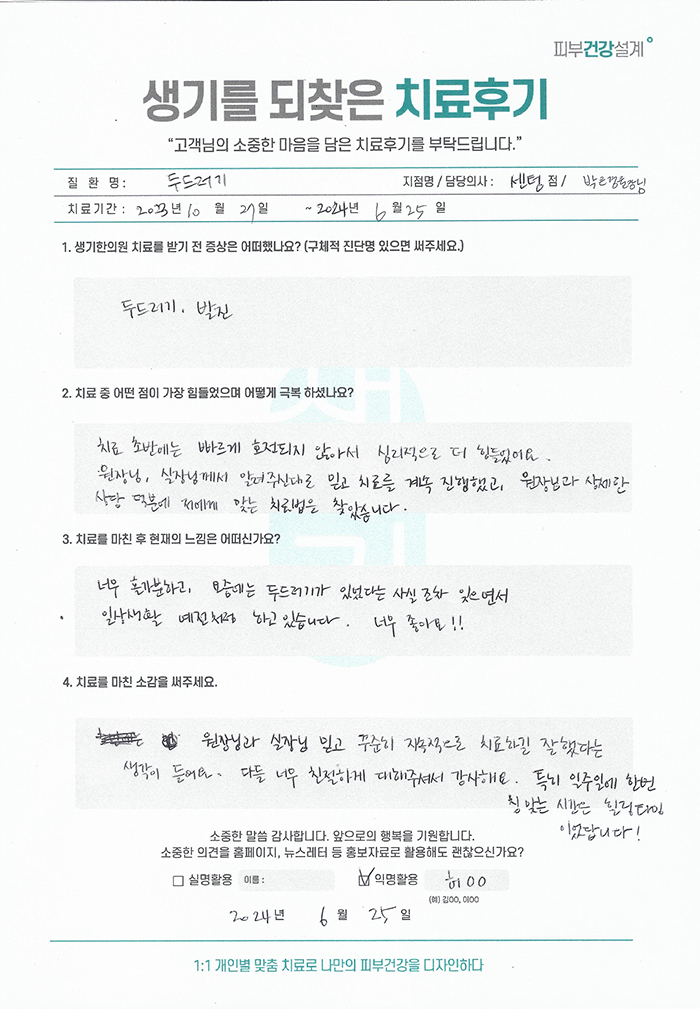 피부건강설계
생기를 되찾은 치료후기
“고객님의 소중한 마음을 담은 치료후기를 부탁드립니다.”
질 환 명 : 두드러기 지점명 / 담당의사 : 센텀 점 / 박은경원장님
치료기간 : 2023년 10 월 27일 ~ 2024년 6 월 25 일
1. 생기한의원 치료를 받기 전 증상은 어떠했나요? (구체적 진단명 있으면 써주세요.)
두드러기, 발진
2. 치료 중 어떤 점이 가장 힘들었으며 어떻게 극복 하셨나요?
치료 초반에는 빠르게 호전되지 않아서 심리적으로 더 힘들었어요.
원장님, 실장님께서 알려주신대로 믿고 치료를 계속 진행했고, 원장님과 상세한
상담 덕분에 저에게 맞는 치료법을 찾았습니다.
3. 치료를 마친 후 현재의 느낌은 어떠신가요?
너무 홀가분하고, 요즘에는 두드러기가 있었다는 사실 조차 잊으면서
일상생활 예전처럼 하고 있습니다. 너무 좋아요!!
4. 치료를 마친 소감을 써주세요.
원장님과 실장님 믿고 꾸준히 지속적으로 치료하길 잘했다는
생각이 들어요. 다들 너무 친절하게 대해주셔서 감사해요. 특히 일주일에 한번
침 맞는 시간은 힐링타임
이었답니다!
소중한 말씀 감사합니다. 앞으로의 행복을 기원합니다.
소중한 의견을 홈페이지, 뉴스레터 등 홍보자료로 활용해도 괜찮으신가요?
실명활용 이름 : 익명활용 허OO
(예) 김OO, 이OO
2024 년 6 월 25 일
1:1 개인별 맞춤 치료로 나만의 피부건강을 디자인하다